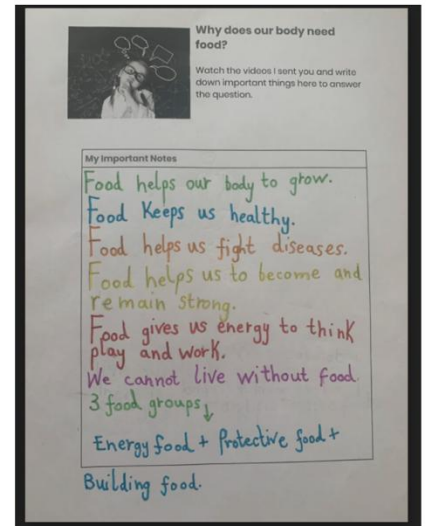 Why does our body need
food?
Watch the videos I sent you and write
down important things here to answer
the question.
My Important Notes
Food helps our body to grow.
Food Keeps us healthy.
Food helps us fight diseases.
Food helps us to become and
remain strong.
Food gives us energy to think
play and work.
We cannot live without food.
3 food groups↓
Energy food + Protective food +
Building food.